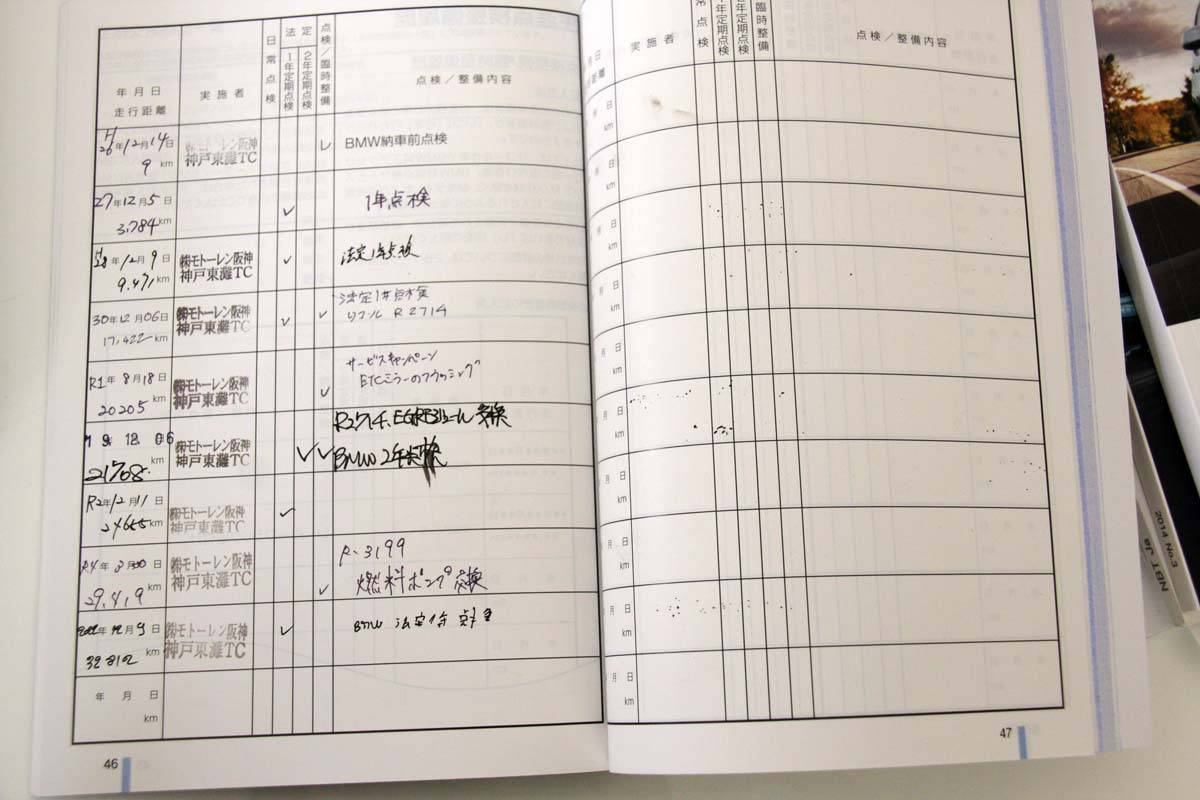 年月日
走行距離
実施者
日常点検
法定
1年定期点検
2年定期点検
点検/臨時整備
点検/整備内容
H
26年12月14日
9 km
㈱モトーレン阪神
神戸東灘TC
BMW納車前点検
27年12月5日
3,784km
1年点検
H
28年12月9日
9,471km
㈱モトーレン阪神
神戸東灘TC
法定1年点検
30年12月06日
17,422km
㈱モトーレン阪神
神戸東灘TC
法定1年点検
リコール R2714
R1年8月18日
20205km
㈱モトーレン阪神
神戸東灘TC
サービスキャンペーン
ETCミラーのフラッシング
km
㈱モトーレン阪神
神戸東灘TC
R2714.
BMW 2年点検
R2年12月11日
km
㈱モトーレン阪神
神戸東灘TC
R4年
29,419km
㈱モトーレン阪神
神戸東灘TC
R-3199
燃料ポンプ交換
年 月9日
km
㈱モトーレン阪神
神戸東灘TC
BMW 法定
年 月 日
km
46
月日
距離
実施者
常点検
年定期点検
年定期点検
臨時整備
点検/整備内容
月 日
km
月 日
km
月 日
km
月 日
km
月 日
km
月 日
km
月 日
km
月 日
km
月 日
km
月 日
km
47
2014 No.3
NBT Ja